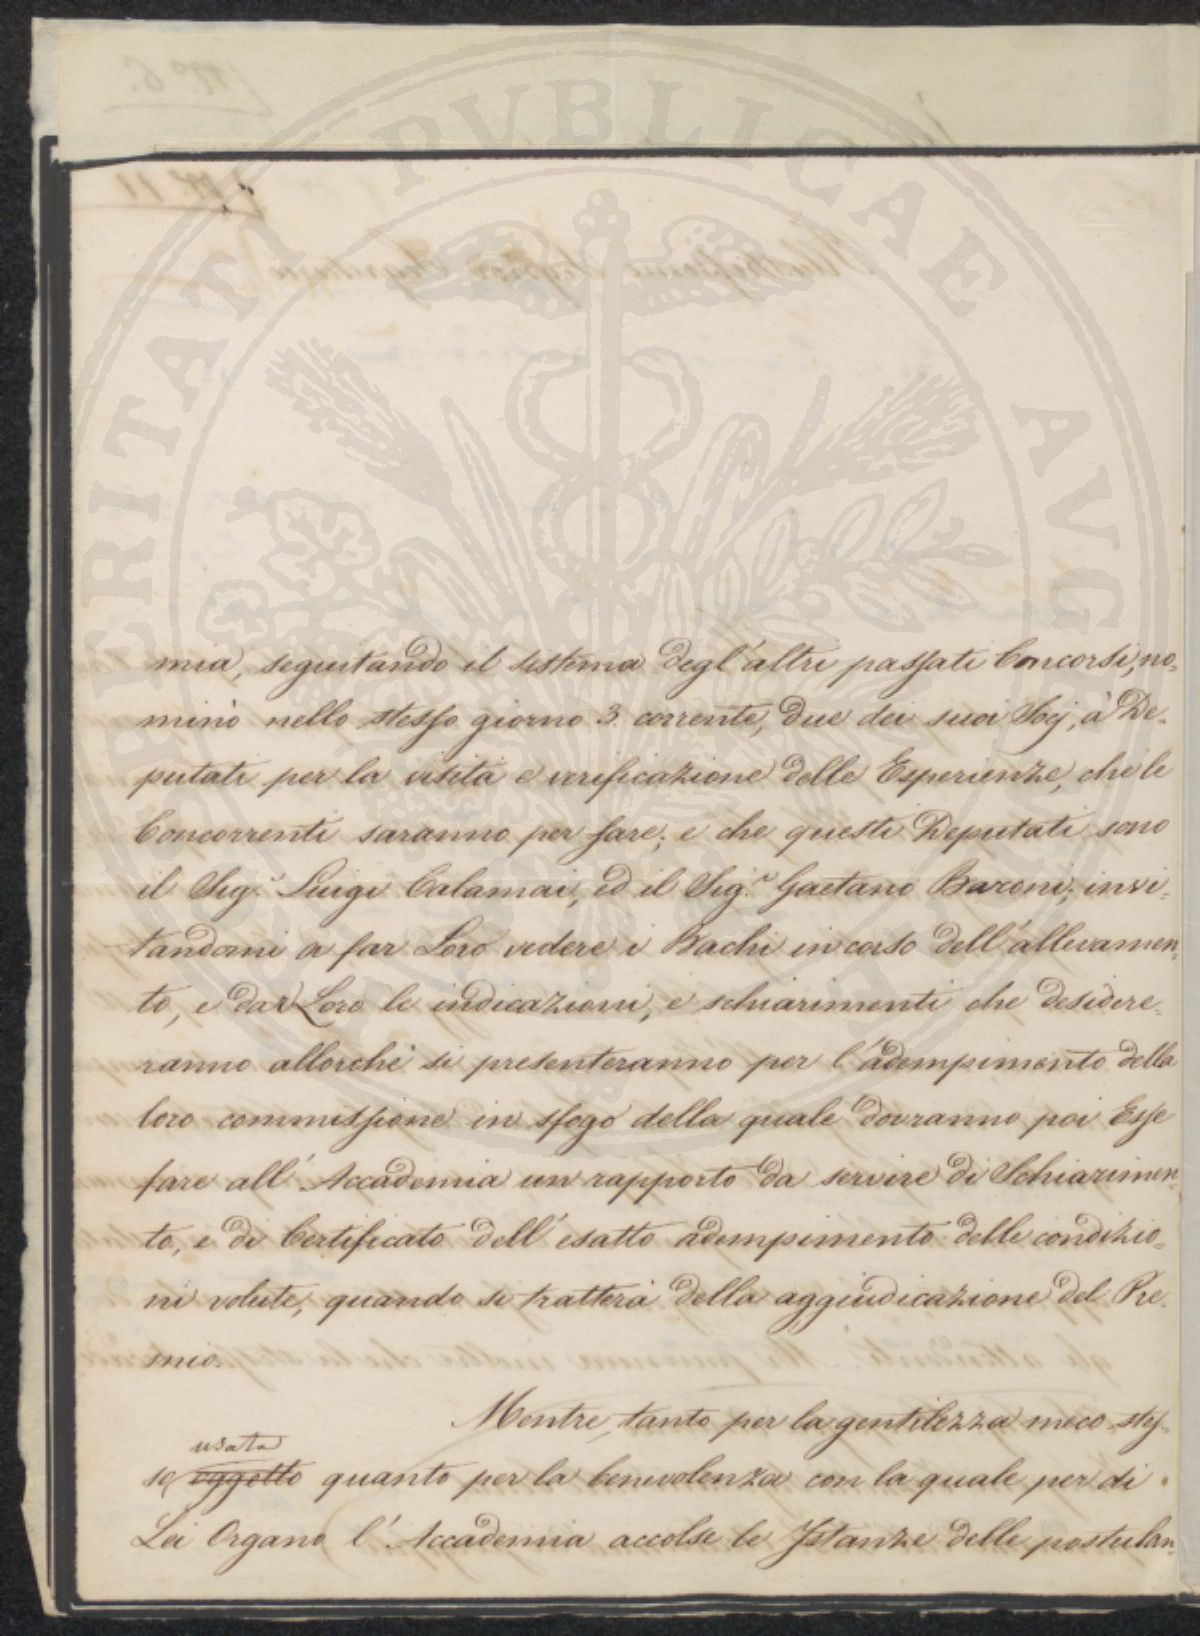 PROSPERITATI PVBLICAE AVGENDAE
mia, seguitando il sistema degl'altri passati Concorsi, no-
minò nello stesso giorno 3. corrente, due dei suoi Socj, à De-
putati per la visita e verificazione delle Esperienze, che le
Concorrenti saranno per fare; e che questi Deputati sono
il Sig.r Luigi Calamai, ed il Sig.r Gaetano Baroni; invi-
tandomi a far Loro vedere i Bachi in corso dell'allevamen-
to, e dar Loro le indicazioni, e schiarimenti che desidere-
ranno allorchè si presenteranno per l'adempimento della
loro commissione in sfogo della quale dovranno poi Esse
fare all'Accademia un rapporto da servire di Schiarimen-
to, e di Certificato dell'esatto adempimento delle condizio-
ni volute, quando si tratterà della aggiudicazione del Pre-
mio.
Mentre, tanto per la gentilezza meco stes-
usata
so oggetto quanto per la benevolenza con la quale per di
Lei Organo l'Accademia accolse le Istanze delle postulan-